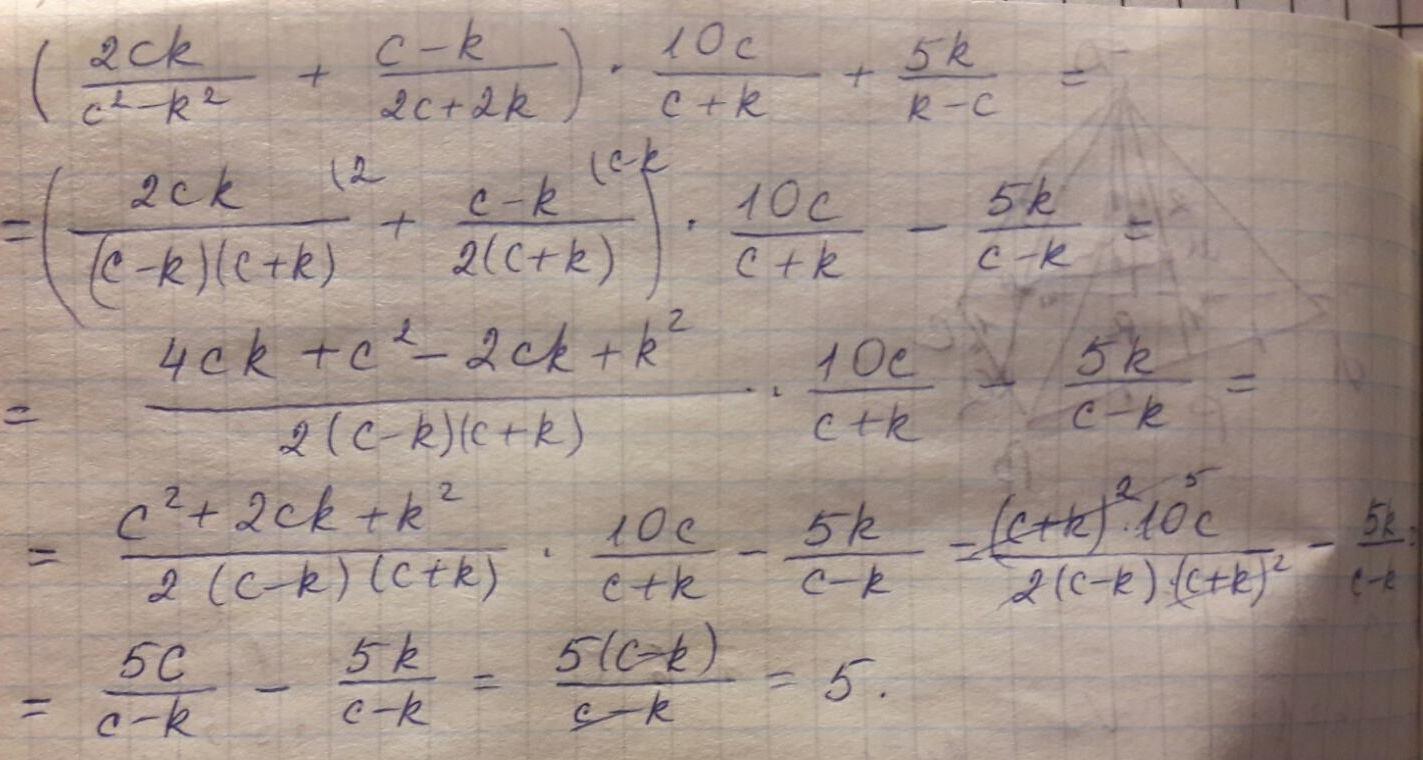 ( 2ck / c²-k² + c-k / 2c+2k ) · 10c / c+k + 5k / k-c =
= ( 2ck / (c-k)(c+k) (2 + c-k / 2(c+k) (c-k ) · 10c / c+k - 5k / c-k =
= 4ck + c² - 2ck + k² / 2(c-k)(c+k) · 10c / c+k - 5k / c-k =
= c² + 2ck + k² / 2(c-k)(c+k) · 10c / c+k - 5k / c-k = (c+k)² · 10c 5 / 2(c-k)·(c+k)² - 5k / c-k =
= 5c / c-k - 5k / c-k = 5(c-k) / c-k = 5.